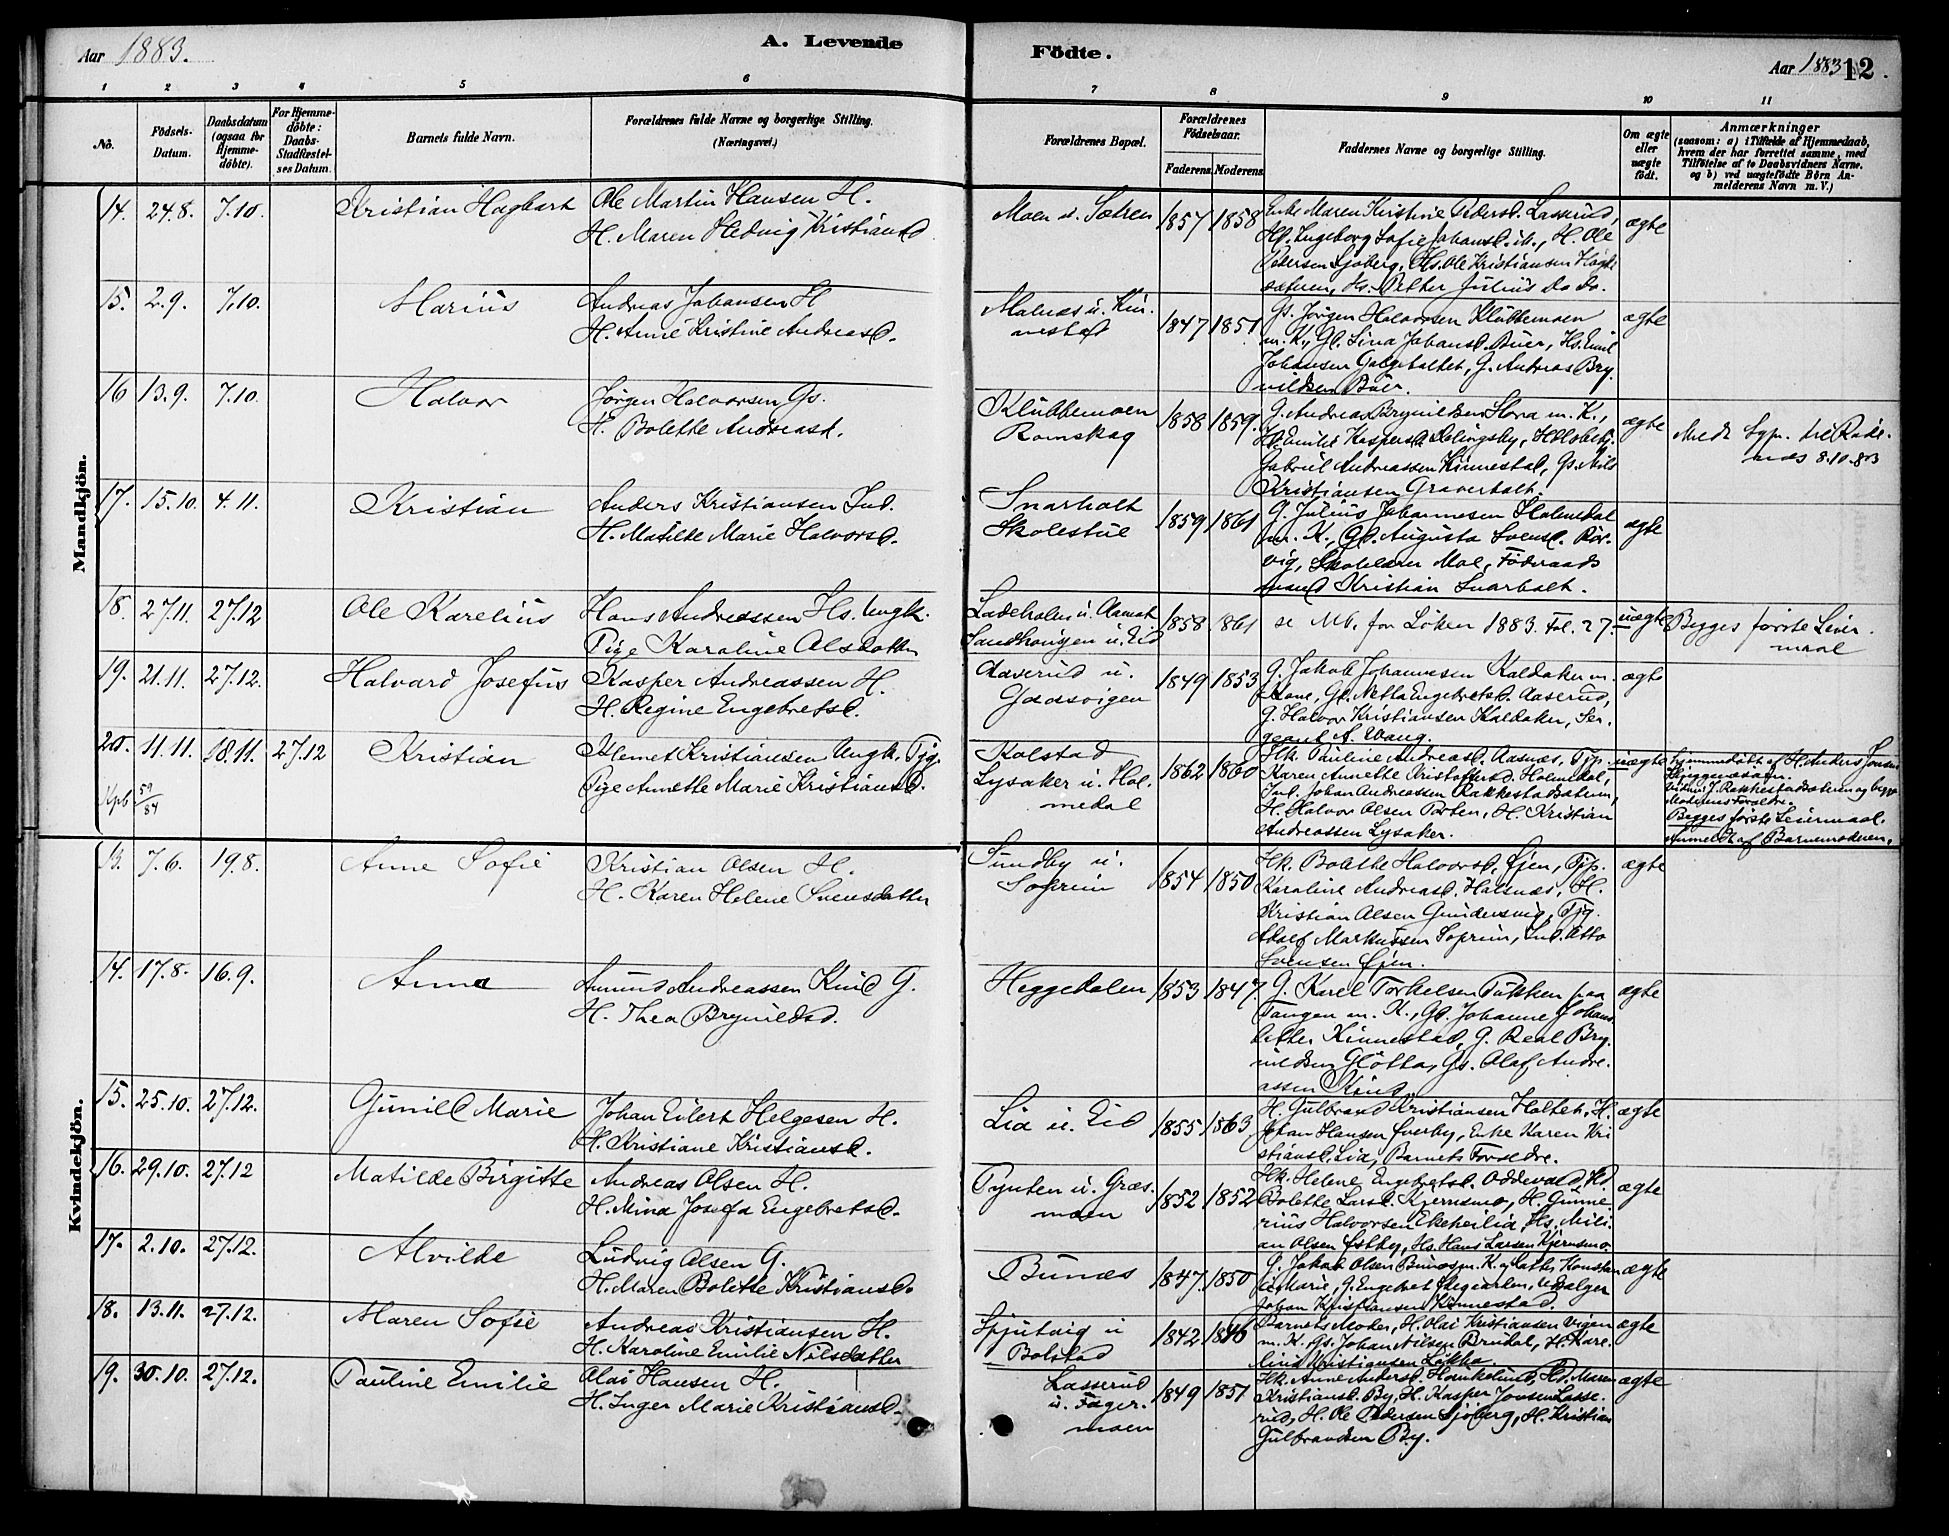 Aar 1883.
A. Levende
Födte.
Aar 1883
12.
1 2 3 4 5 6 7 8 9 10 11
No.
Födsels-
Datum.
Daabsdatum
(ogsaa for
Hjemme-
döbte).
For Hjemme-
döbte:
Daabs-
Stadfæstel-
ses Datum.
Barnets fulde Navn.
Forældrenes fulde Navne og borgerlige Stilling.
(Næringsvei.)
Forældrenes Bopæl.
Forældrenes
Födselsaar.
Faderens. Moderens.
Faddernes Navne og borgerlige Stilling.
Om ægte
eller
uægte
födt.
Anmærkninger
(saasom: a) i Tilfælde af Hjemmedaab,
hvem der har forrettet samme, med
Tilföielse af to Daabsvidners Navne.
og b) ved uægtefödte Börn An-
melderens Navn m. V.)
Mandkjön.
14. 24.8. 7.10. Kristian Hagbart
Ole Martin Hansen H.
H. Maren Hedvig Kristiansd
Moen u. Sætren
1857 1858
Enke Maren Kirstine Pedersd. Lasserud,
Hk. Ingeborg Sofie Johansd. ib., H. Ole
Pedersen Sjöberg, Hs. Ole Kristiansen
Hs. Petter Julius Do Do.
ægte
15. 2.9. 7.10. Marius
Andreas Johansen H
H. Anne Kristine Andreasd.
Malnæs u. Kin-
nestad
1847 1851
Gs. Jörgen Halvorsen Klubbemoen
m. K., Gd. Lina Johansd. Buer, Hs. Emil
Johansen Galgeholtet, G. Andreas Bry-
nildsen Buer.
ægte
16 13.9. 7.10. Halvor
Jörgen Halvorsen Gs.
H. Bolette Andreasd.
Klubbemoen
Romskog
1858 1859.
G. Andreas Brynildsen Slora m. K.,
Hk. Emilie Kaspersd.
Gabriel Andreassen Kinnestad, Gs. Nils
Kristiansen Graverholt.
ægte
17. 15.10. 4.11. Kristian
Anders Kristiansen Ind.
H. Matilde Marie Halvorsd.
Snarholt
Skolestue
1859 1861
G. Julius Johannesen Holmedal
m. K., Gd. Augusta Svensd. Rör-
vig, Skolelærer Moe, Föderaads
mand Kristian Snarholt.
ægte
18. 27.11. 27.12 Ole Karelius
Hans Andreassen Hs. Ungk.
Pige Karoline Olsdatter
Ladeholm u. Aamot
Sandhaugen u. Eid
1858 1861
se Mb. for Löken 1883. Fol. 27.
uægte
Begges förste Leier-
maal
19. 21.11. 27.12. Halvard Josefus
Kasper Andreassen H.
H. Regine Engebretsd.
Aaserud u.
Gaasvigen
1849 1853
G. Jakob Johannesen Kaldaker m.
Kone, Gd. Netta Engebretsd. Aaserud,
G. Halvor Kristiansen Kaldaker, Ser-
geant A. Wang.
ægte
20. 11.11. 18.11. 27.12 Kristian
59/84
Klemet Kristiansen Ungk. Tjg.
Pige Annette Marie Kristiansd.
Kolstad
Lysaker u. Hol-
medal
1862 1860
Hk. Pauline Andreasd. Aasnæs, Tjp.
Karen Annette Kristoffersd. Holmedal,
Ind. Johan Andreassen Rakkestadsæteren,
H. Halvor Olsen Torten, H. Kristian
Andreassen Lysaker.
uægte
Hjemmedöbt af H. Anders Jonsen
Moderens Forældre.
Begges förste Leiermaal.
Anmeldt af Barnemoderen.
Kvindekjön.
13. 7.6. 19.8. Anne Sofie
Kristian Olsen H.
H. Karen Helene Svensdatter
Sundby u.
Soprim
1854 1850
Hk. Bolette Halvorsd. Öjen, Tjp.
Karoline Andreasd. Halsnæs, H.
Kristian Olsen Gundersvig, Tjg.
Adolf Markussen Soprim, Ind. Otto
Svensen Öjen.
ægte
14. 17.8. 16.9. Anna
Amund Andreassen Kind G.
H. Thea Brynildsd.
Heggedalen
1853 1847.
G. Karl Torkelsen Tukken paa
Tangen m. K., Gd. Johanne Johans-
datter Kinnestad, G. Real Bry-
nildsen Slötta, Gs. Olaf Andre-
assen Kind.
ægte
15. 25.10. 27.12. Gunild Marie
Johan Eilert Helgesen H.
H. Kristiane Kristiansd.
Lia u. Eid
1855 1863
H. Gulbrand Kristiansen Holtet, H.
Johan Hansen Överby, Enke Karen Kri
stiansd. Lia, Barnets Forældre.
ægte
16. 29.10. 27.12 Matilde Birgitte
Andreas Olsen H.
H. Mina Josefa Engebretsd.
Tynten u. Græs-
moen
1852 1852
Hk. Helene Engebretsd. Oddevald, Hd.
Bolette Larsd. Kjernsmo, H. Gunne-
rius Halvorsen Ekeheilia, Hs. Mili-
an Olsen Östby, Hs. Hans Larsen Kjernsmo.
ægte
17. 2.10. 27.12. Alvilde
Ludvig Olsen G.
H. Maren Bolette Kristiansd.
Bunæs
1847. 1850
G. Jakob Olsen Bunæs m. K.
Marie, G. Engebret
Johan Kristiansen Kinnestad.
ægte
18. 13.11. 27.12. Maren Sofie
Andreas Kristiansen H.
H. Karoline Emilie Nilsdatter
Spjutvig u
Bolstad
1842 1846
Barnets Moder, H. Olai Kristiansen Vigen
m. K. Gs. Johan Nilsen Brudal, H. Kare-
lius Kristiansen Lökka.
ægte
19. 30.10. 27.12. Pauline Emilie
Olai Hansen H.
H. Inger Marie Kristiansd.
Lasserud
u. Fager-
moen
1849 1851
Hk. Anne Andersd. Hornkolund, Hd. Maren
Kristiansd. By, H. Kasper Jonsen Lasse-
rud, H. Ole Pedersen Sjöberg, H. Kristian
Gulbrandsen By.
ægte